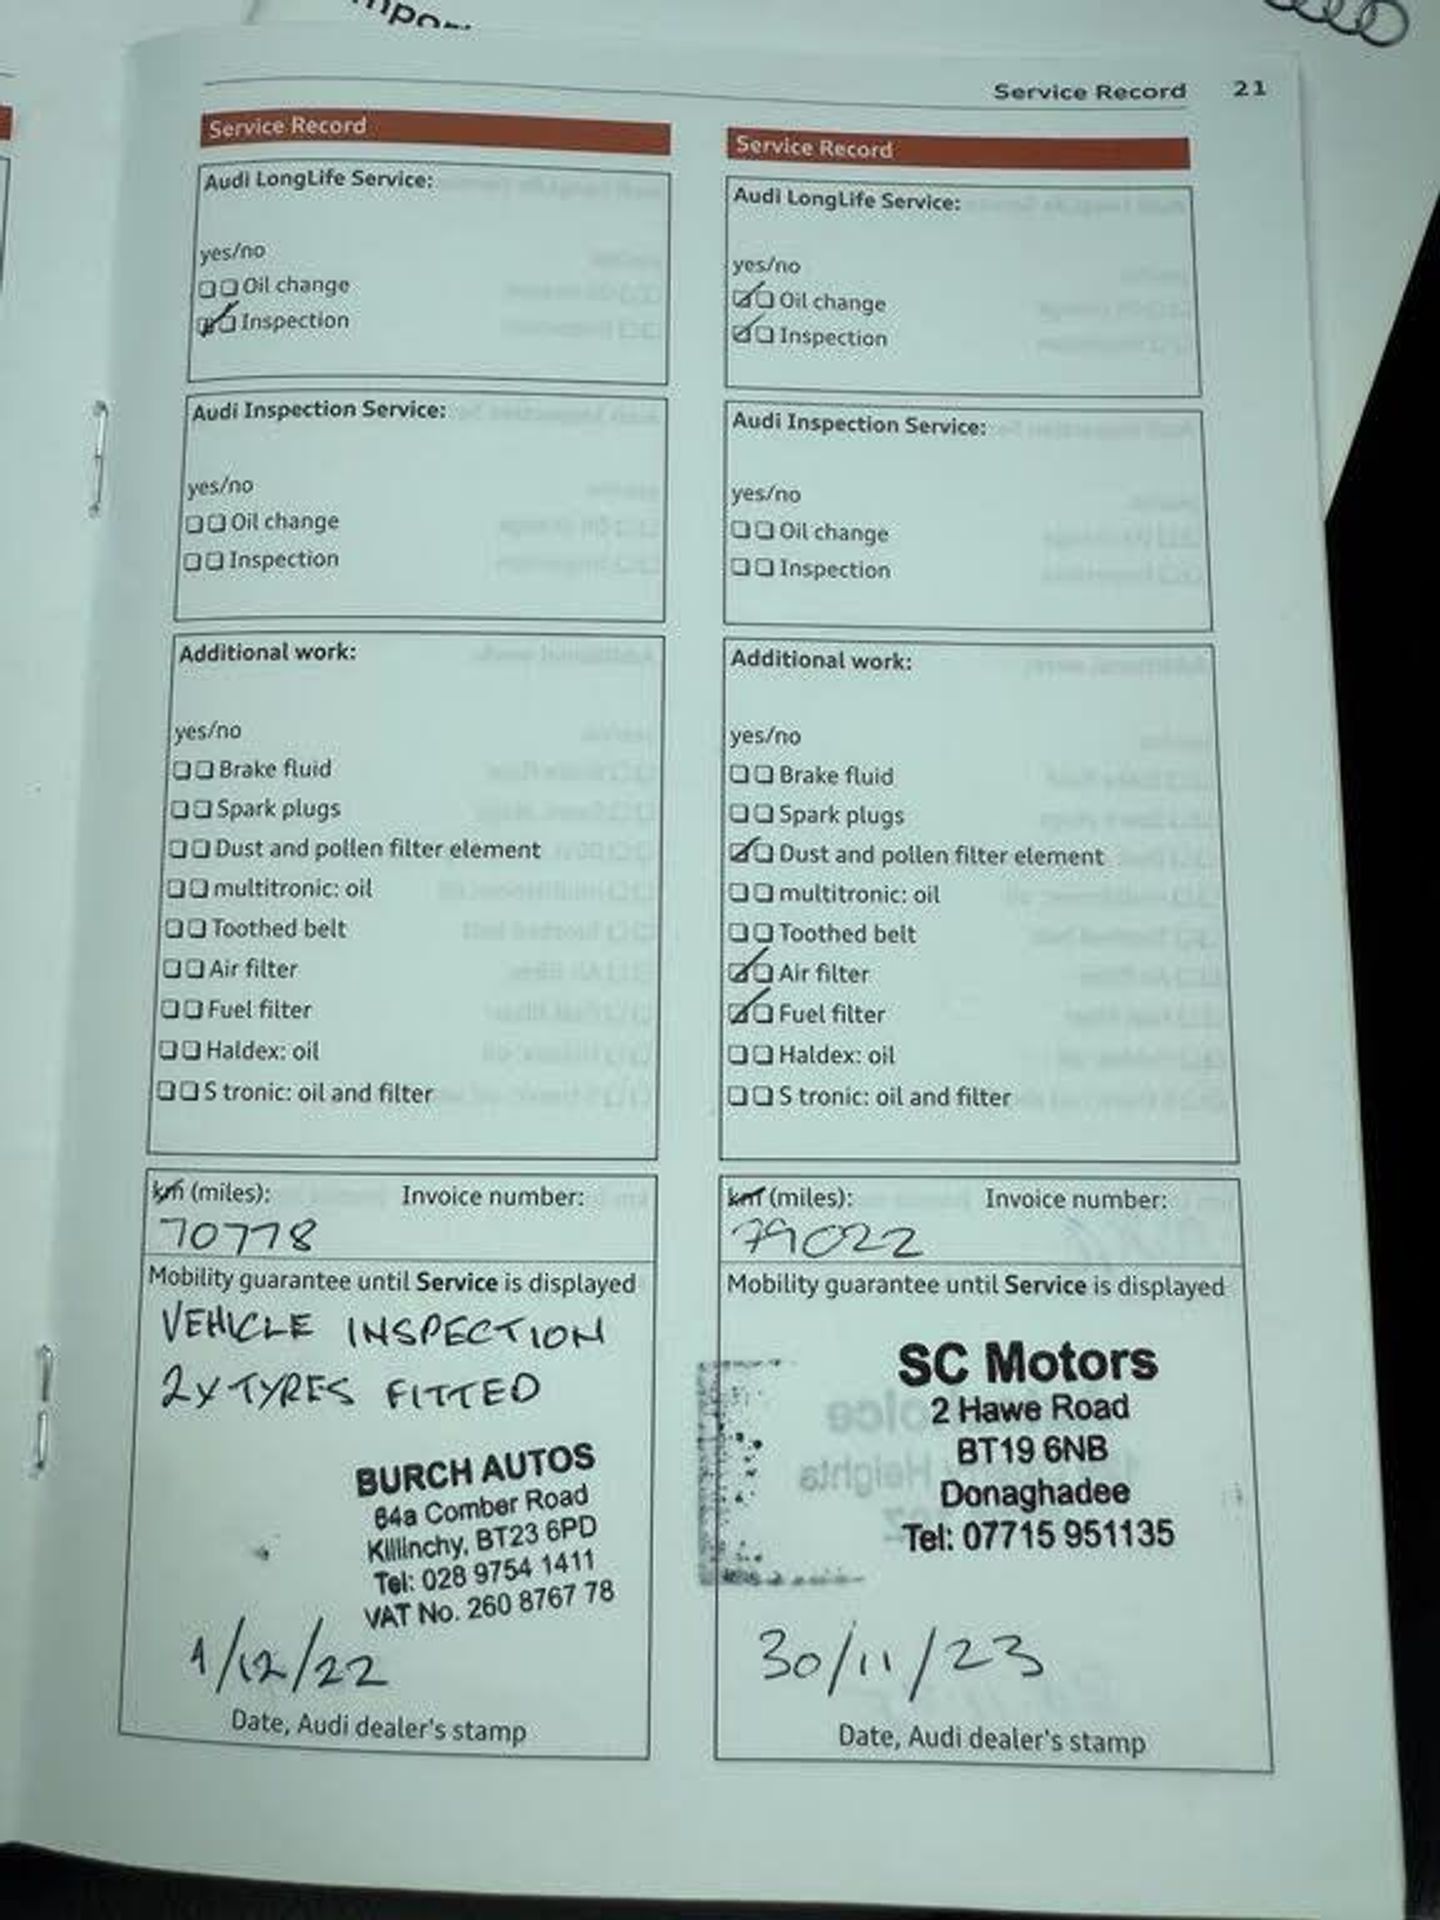 Service Record 21
Service Record
Audi LongLife Service:
yes/no
Oil change
Inspection
Audi Inspection Service:
yes/no
Oil change
Inspection
Additional work:
yes/no
Brake fluid
Spark plugs
Dust and pollen filter element
multitronic: oil
Toothed belt
Air filter
Fuel filter
Haldex: oil
S tronic: oil and filter
km (miles): Invoice number:
70778
Mobility guarantee until Service is displayed
VEHICLE INSPECTION
2x TYRES FITTED
BURCH AUTOS
64a Comber Road
Killinchy, BT23 6PD
Tel: 028 9754 1411
VAT No. 260 8767 78
1/12/22
Date, Audi dealer's stamp
Service Record
Audi LongLife Service:
yes/no
Oil change
Inspection
Audi Inspection Service:
yes/no
Oil change
Inspection
Additional work:
yes/no
Brake fluid
Spark plugs
Dust and pollen filter element
multitronic: oil
Toothed belt
Air filter
Fuel filter
Haldex: oil
S tronic: oil and filter
km (miles): Invoice number:
79022
Mobility guarantee until Service is displayed
SC Motors
2 Hawe Road
BT19 6NB
Donaghadee
Tel: 07715 951135
30/11/23
Date, Audi dealer's stamp